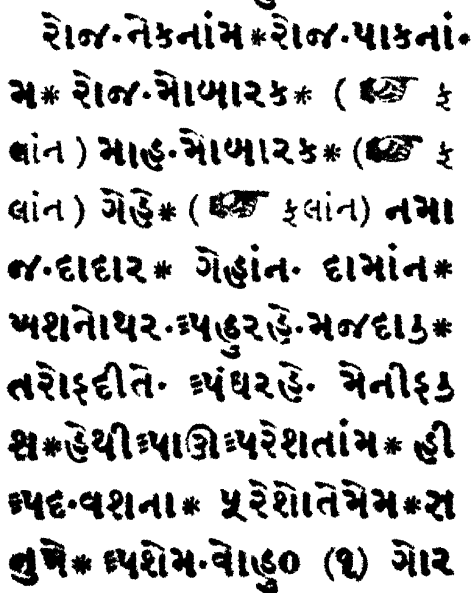 રોજ.નેકનાંમ*રોજ.પાકનાં.
મ* રોજ.મોબારક* (☞ ફ
લાંન) માહ.મોબારક*(☞ ફ
લાંન) ગેહે* (☞ ફલાંન) નમા
જ.દાદાર* ગેહાંન. દામાંન*
ખશનોથર.ઃપહુરહે.મજદાકુ*
તરોઇદીતે. ઃપંધરહે. મેનીફકુ
શ*હેથીઃપાઊઃપરેશતાંમ* હી
ઃપદ.વશના* પૂરેશોતેમેમ*સ
તુએ* ઃપશેમ.વોહુ૦ (૧) ગોર